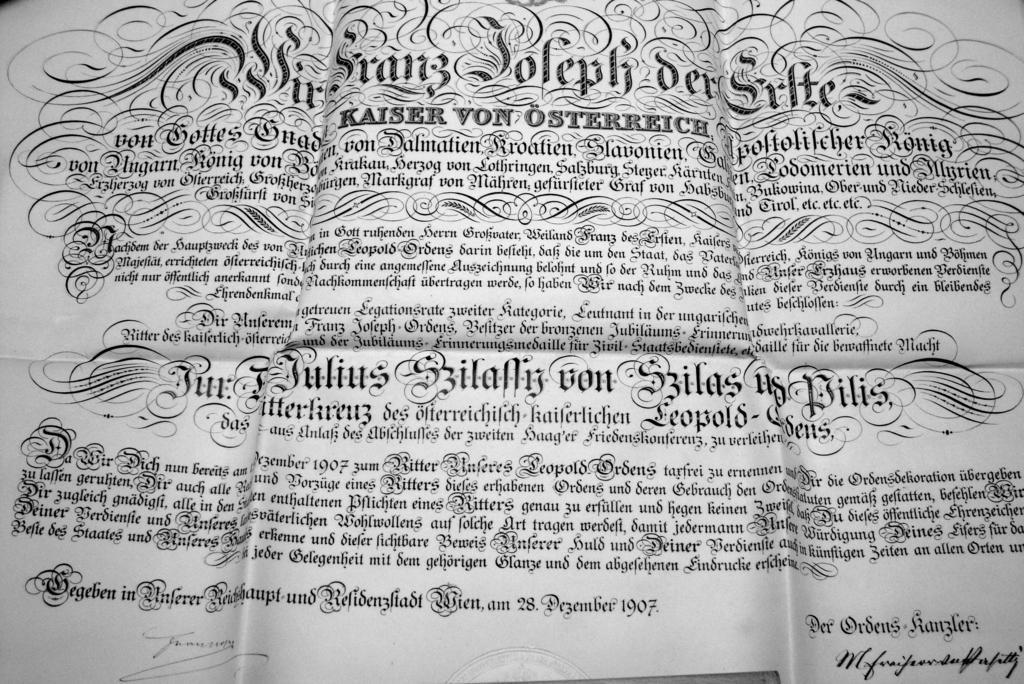 Wir Franz Joseph der Erste,
KAISER VON ÖSTERREICH
von Gottes Gnad Apostolischer König
von Ungarn, König von Bö en, von Dalmatien, Kroatien, Slavonien, Gal en, Lodomerien und Illyrien,
Erzherzog von Österreich, Großherzo Krakau, Herzog von Lothringen, Salzburg, Steyer, Kärnten, Bukowina, Ober- und Nieder-Schlesien,
Großfürst von Si bürgen, Markgraf von Mähren, gefürsteter Graf von Habsbur nd Tirol, etc. etc. etc.
Nachdem der Hauptzweck des von Un in Gott ruhenden Herrn Großvater, Weiland Franz des Ersten, Kaisers Österreich, Königs von Ungarn und Böhmen
Majestät, errichteten österreichisch- lichen Leopold-Ordens darin besteht, daß die um den Staat, das Vaterl und Unser Erzhaus erworbenen Verdienste
nicht nur öffentlich anerkannt sonde durch eine angemessene Auszeichnung belohnt und so der Ruhm und das lken dieser Verdienste durch ein bleibendes
Ehrendenkmal Nachkommenschaft übertragen werde, so haben Wir nach dem Zwecke des utes beschlossen:
Dir Unserem getreuen Legationsrate zweiter Kategorie, Leutnant in der ungarischen dwehrkavallerie,
Ritter des kaiserlich-österreic Franz Joseph-Ordens, Besitzer der bronzenen Jubiläums-Erinnerun daille für die bewaffnete Macht
und der Jubiläums-Erinnerungsmedaille für Zivil-Staatsbedienstete, etc.
Jur. Julius Szilassy von Szilas und Pilis,
das Ritterkreuz des österreichisch-kaiserlichen Leopold-Ordens,
aus Anlaß des Abschlusses der zweiten Haag'er Friedenskonferenz, zu verleihen.
Da Wir Dich nun bereits am Dezember 1907 zum Ritter Unseres Leopold Ordens taxfrei zu ernennen und Dir die Ordensdekoration übergeben
zu lassen geruhten, Dir auch alle und Vorzüge eines Ritters dieses erhabenen Ordens und deren Gebrauch den Ordensstatuten gemäß gestatten, befehlen Wir
Dir zugleich gnädigst, alle in den enthaltenen Pflichten eines Ritters genau zu erfüllen und hegen keinen Zweifel, daß Du dieses öffentliche Ehrenzeichen
Deiner Verdienste und Unseres väterlichen Wohlwollens auf solche Art tragen werdest, damit jedermann Unsere Würdigung Deines Eifers für da
Beste des Staates und Unseres Hau erkenne und dieser sichtbare Beweis Unserer Huld und Deiner Verdienste auch in künftigen Zeiten an allen Orten un
jeder Gelegenheit mit dem gehörigen Glanze und dem abgesehenen Eindrucke erscheine.
Gegeben in Unserer Reichshaupt- und Residenzstadt Wien, am 28. Dezember 1907.
Der Ordens-Kanzler: